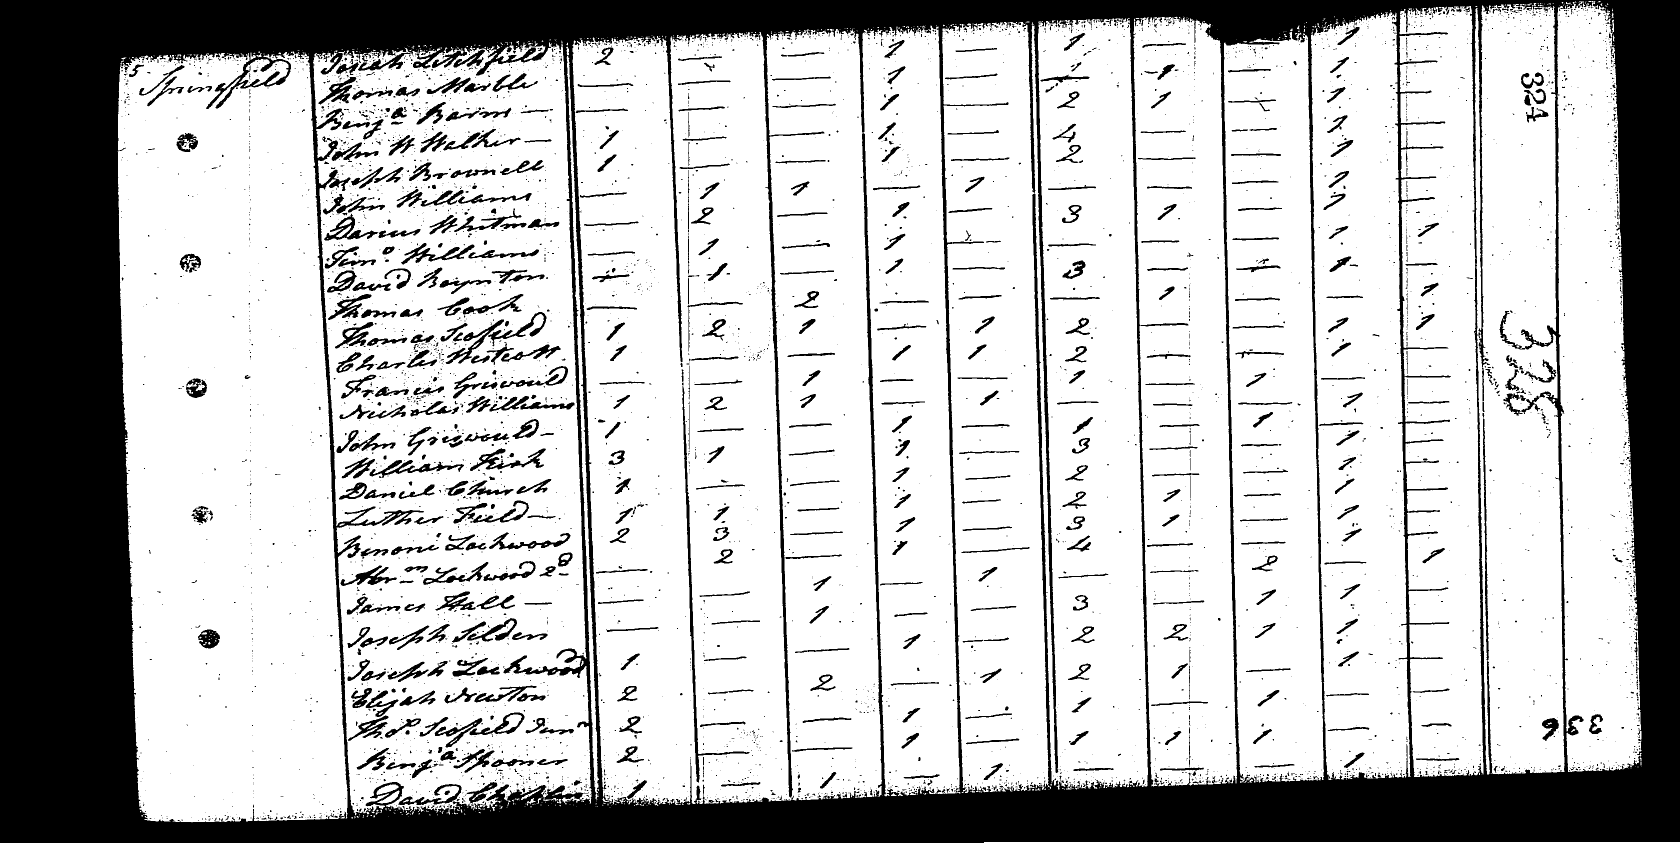 5 Springfield Josiah Litchfield 2 — — 1 — 1 — 1 —
Thomas Marble — — — 1 — 1 1 — 1 —
Benjª Barns — — — — 1 — 2 1 — 1 —
John W Walker — 1 — — 1 — 4 — — 1 —
Joseph Brownell 1 — — 1 — 2 — — 1 —
John Williams — 1 1 — 1 — — — 1 —
Darius Whitman — 2 — 1 — 3 1 — 1 —
Simº Williams — 1 — 1 — — — — 1 1
David Boynton — 1 — 1 — 3 — — 1 —
Thomas Cook — — 2 — — — 1 — — 1
Thomas Scofield 1 2 1 — 1 2 — — 1 1
Charles Westcott 1 — — 1 1 2 — — 1 —
Francis Griswould — — 1 — — 1 — 1 — —
Nicholas Williams 1 2 1 — 1 — — — 1 —
John Griswould — 1 — — 1 — 1 — 1 — —
William Fisk 3 1 — 1 — 3 — — 1 —
Daniel Church 1 — — 1 — 2 — — 1 —
Luther Field — 1 1 — 1 — 2 1 — 1 —
Benoni Lockwood 2 3 — 1 — 3 1 — 1 —
Abrm Lockwood 2d — 2 — 1 — 4 — — 1 —
James Hall — — — 1 — 1 — — 2 — 1
Joseph Selden — — 1 — — 3 — 1 1 —
Joseph Lockwood 1 — — 1 — 2 2 1 1 —
Elijah Newton 2 — 2 — 1 2 1 — 1 —
Thos. Scofield Junr 2 — — 1 — 1 — 1 — —
Benjª Spooner 2 — — 1 — 1 1 1 — —
David 1 — 1 — 1 — — — 1 —
324
328
336